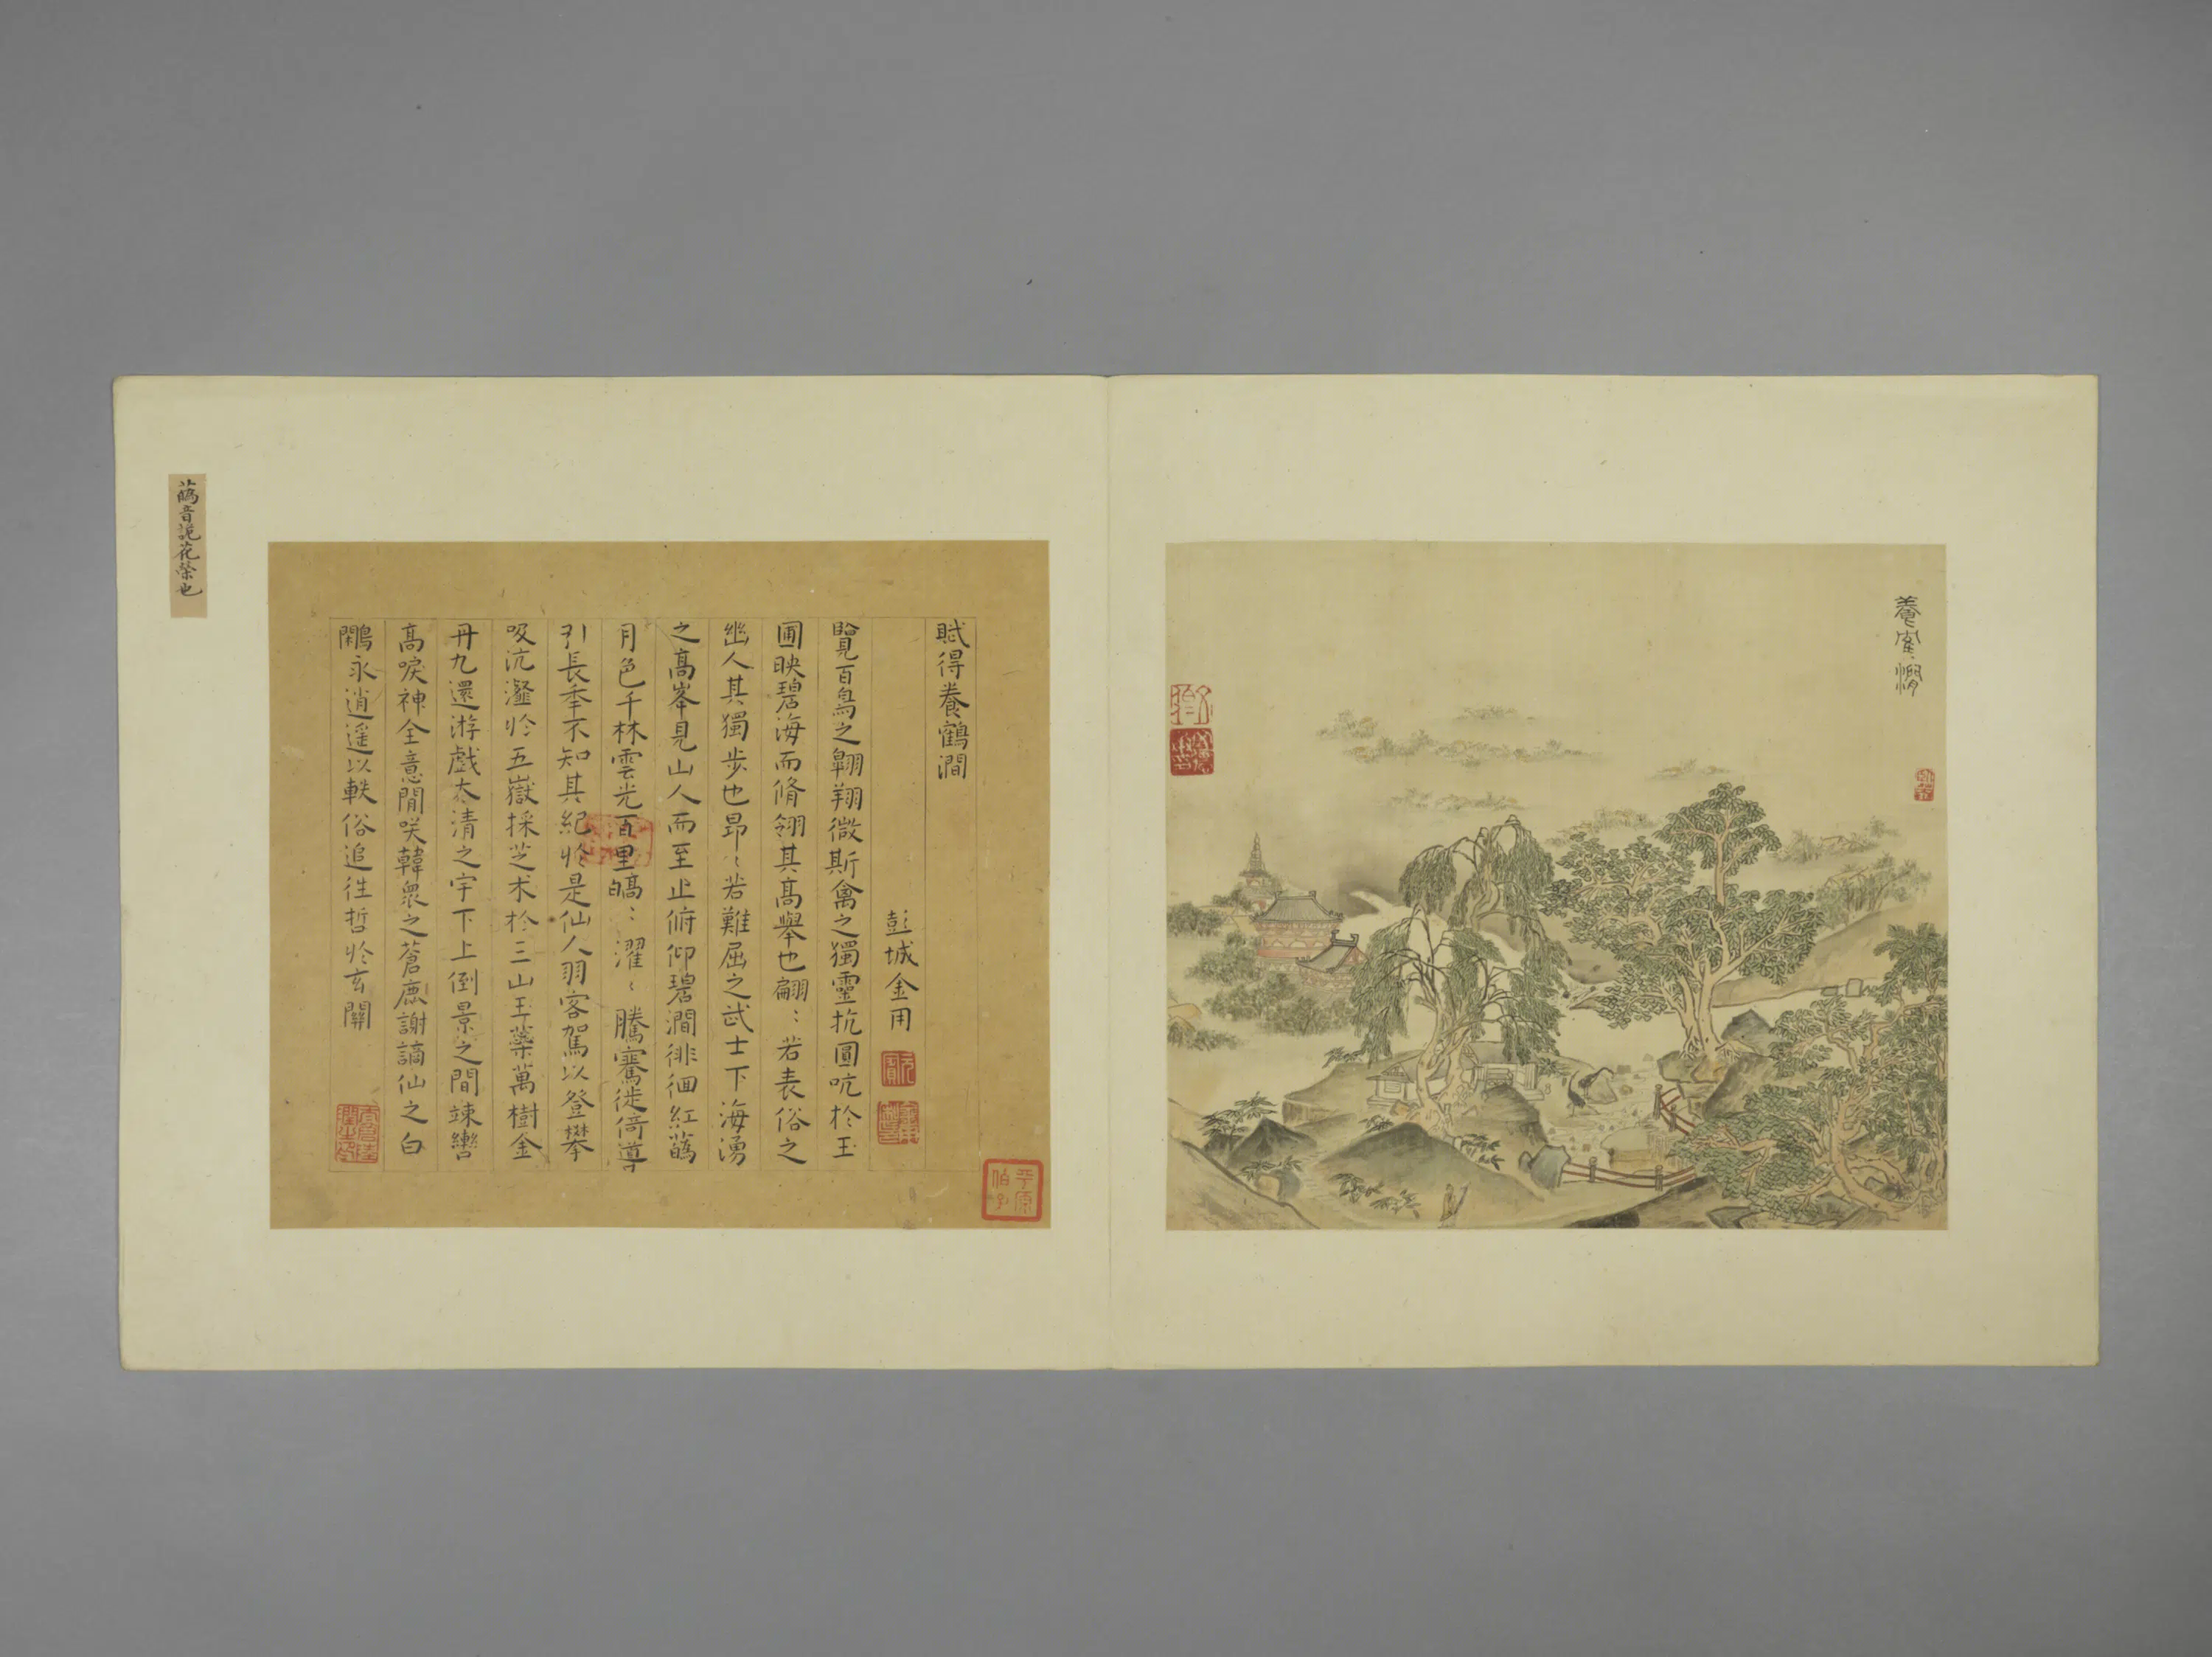 養鶴澗
賦得養鶴澗
彭城金用
覽百鳥之翱翔微斯禽之獨靈抗圓吭於玉
圃映碧海而脩翎其高舉也翩〻若表俗之
幽人其獨步也昂〻若難屈之武士下海湧
之高峯見山人而至止俯仰碧澗徘徊紅蒍
月色千林雲光百里皜〻濯〻騰騫徙倚導
引長秊不知其紀於是仙人羽客駕以登攀
吸沆瀣於五嶽採芝朮於三山玉藥萬樹金
丹九還游戲太清之宇下上倒景之間竦轡
高唳神全意閒咲韓眾之蒼鹿謝謫仙之白
鷳永逍遥以軼俗追往哲於玄關
音詭花榮也
平原伯子